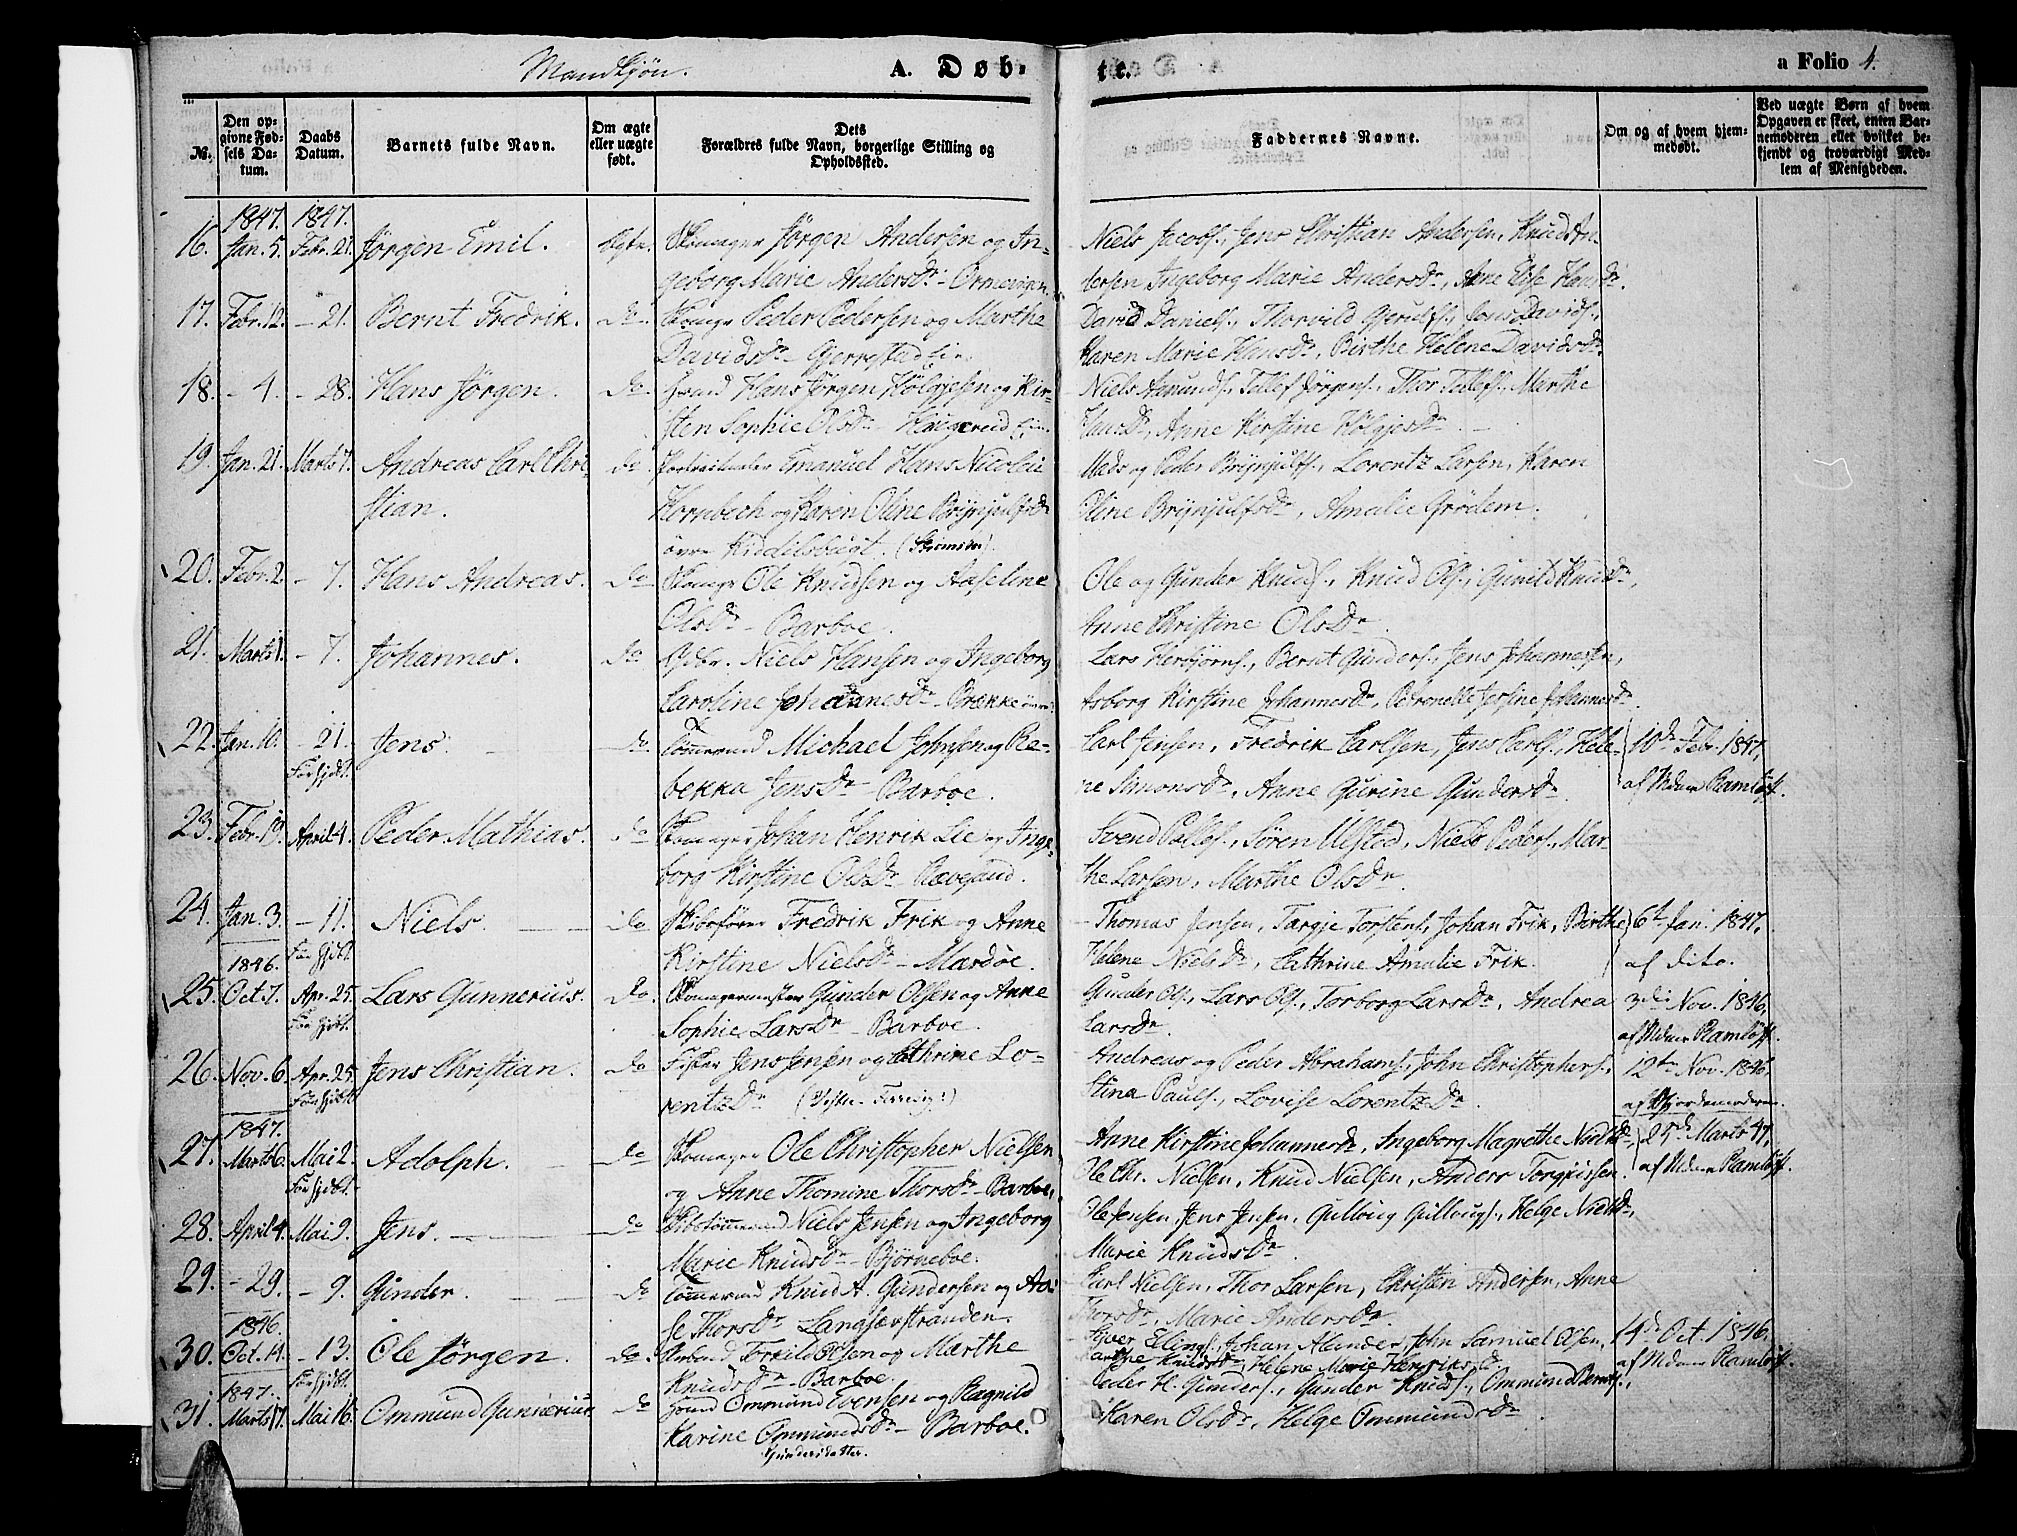 Mandkjøn. A. Døb- te. a Folio 4.
No. Den opgivne Fødsels Datum. Daabs Datum. Barnets fulde Navn. Om ægte eller uægte født. Dets Forældres fulde Navn, borgerlige Stilling og Opholdssted. Faddernes Navne. Om og af hvem hjemmedøbt. Ved uægte Børn af hvem Opgaven er skeet, enten Barnemoderen eller hvilket bekjendt og troværdigt Medlem af Menigheden.
1847. 1847.
16. Jan. 5. Febr. 21. Jørgen Emil. Ægte. Jørgen Andersen og In- Niels Jacobs., Jens Christian Andersen, Knud An-
geborg Marie AndersDr - dersen Ingeborg Marie AndersDr, Anne Else HansDr.
17. Febr. 12. - 21. Bernt Fredrik. Do. Peder Pedersen og Marthe David Daniels., Thorvild Davids.,
DavidsDr - Gjerrestad Karen Marie HansDr, Birthe Helene DavidsDr.
18. - 4. - 28. Hans Jørgen. Do. Hans Jørgen Hølgjesen og Kir- Niels Amunds., Tellef Jørgens., Thor Tellefs., Marthe
sten Sophie OlsDr - HansDr, Anne Kirstine HølgjesDr.
19. Jan. 21. Marts 7. Andreas Carl Chri- Do. Emanuel Hans Nicolai Mads og Peder Brynjulfs., Lorentz Larsen, Karen
stian. Hornbech og Karen Oline BrynjulfsDr Oline BrynjulfsDr, Amalie Grødem.
øvre Kiddilsbugt.
20. Febr. 2. - 7. Hans Andreas. Do. Ole Knudsen og Aaseline Ole og Gunder Knuds., Knud Ols., Gunild KnudsDr,
OlsDr - Barboe. Anne Christine OlsDr.
21. Marts 1. - 7. Johannes. Do. Niels Hansen og Ingeborg Lars Herbjørns., Bernt Gunders., Jens Johannessen,
Caroline JohannesDr - Brække Asborg Kirstine JohannesDr, Petronelle Jersine JohannesDr.
22. Jan. 10. - 21. Jens. Do Tømmermd Michael Johnsen og Re- Carl Jensen, Fredrik Carlsen, Jens Carls., Hele- 10de Febr. 1847,
bekka JensDr - Barboe. ne SimonsDr, Anne Gurine GundersDr. af Mdme Ramløff.
23. Febr. 19. April 4. Peder Mathias. Do Johan Henrik Lie og Inge- Svend Pallef., Søren Ulstad, Niels Peders., Mar-
borg Kirstine OlsDr - Rævesand. the Larsen, Marthe OlsDr.
24. Jan. 3. - 11. Niels. Do Skibsfører Fredrik Frik og Anne Thomas Jensen, Targje Torstens., Johan Frik, Birthe 6te Jan. 1847,
Kirstine NielsDr - Mærdøe. Helene NielsDr, Cathrine Amalie Frik. af dito.
1846.
25. Oct. 7. Apr. 25. Lars Gunnerius. Do. Gunder Olsen og Anne Gunder Ols., Lars Ols., Torborg LarsDr, Andrea 3die Nov. 1846,
Sophie LarsDr - Barboe. LarsDr. af Mdme Ramløff.
26. Nov. 6. Apr. 25. Jens Christian. Do Fisker Jens Jensen og Cathrine Lo- Andreas og Peder Abrahams., John Christophers., 12te Nov. 1846,
rentzDr Stina Pauls., Lovise LorentzDr. af Gjordemoderen.
1847.
27. Marts 6. Mai 2. Adolph. Do Ole Christopher Nielsen Anne Kirstine JohannesDr, Ingeborg Magrethe NielsDr, 25de Marts 47,
og Anne Thomine ThorsDr - Barboe. Ole Chr. Nielsen, Knud Nielsen, Anders Torgrissen. af Mdme Ramløff.
28. April 4. Mai 9. Jens. Do Skibstømmermd Niels Jensen og Ingeborg Ole Jensen, Jens Jensen, Gulbrig Gulbrigs., Helge NielsDr,
Marie KnudsDr - Bjørneboe. Marie KnudsDr.
29. - 29. - 9. Gunder. Do Tømmermd Knud A. Gundersen og Aa- Carl Nielsen, Thor Larsen, Christen Andersen, Anne
se ThorsDr Langsævstranden. ThorsDr, Marie AndersDr.
1846.
30. Oct. 14. - 13. Ole Jørgen. Do. Olsen og Marthe Johan John Samuel Olsen, 14de Oct. 1846.
KnudsDr - Barboe. Marthe KnudsDr, Helene Marie HenriksDr. af Mdme Ramløff.
1847.
31. Marts 17. Mai 16. Ommund Gunnerius. Do Ommund Evensen og Ragnild Peder H. Gunders., Gunder Knuds., Ommund Bernts.,
Karine OmmundsDr - Barboe. Karen OlsDr, Helge OmmundsDr.
Gundersdatter.